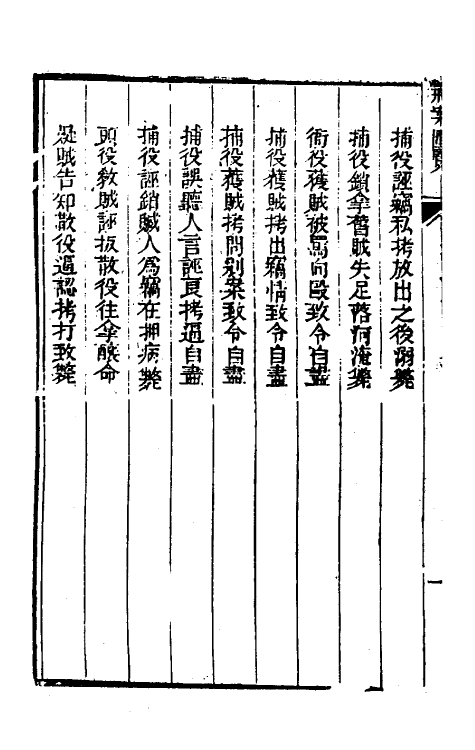 刑案匯覽
捕役誣竊私拷放出之後溺斃
捕役鎖拿舊賊失足落河淹斃
衙役獲賊被罵向毆致令自盡
捕役獲賊拷出竊情致令自盡
捕役獲賊拷問别案致令自盡
捕役誤聽人言誣良拷逼自盡
捕役誣銷贓人爲竊在押病斃
頭役教賊誣扳散役往拿釀命
疑賊告知散役逼認拷打致斃
一